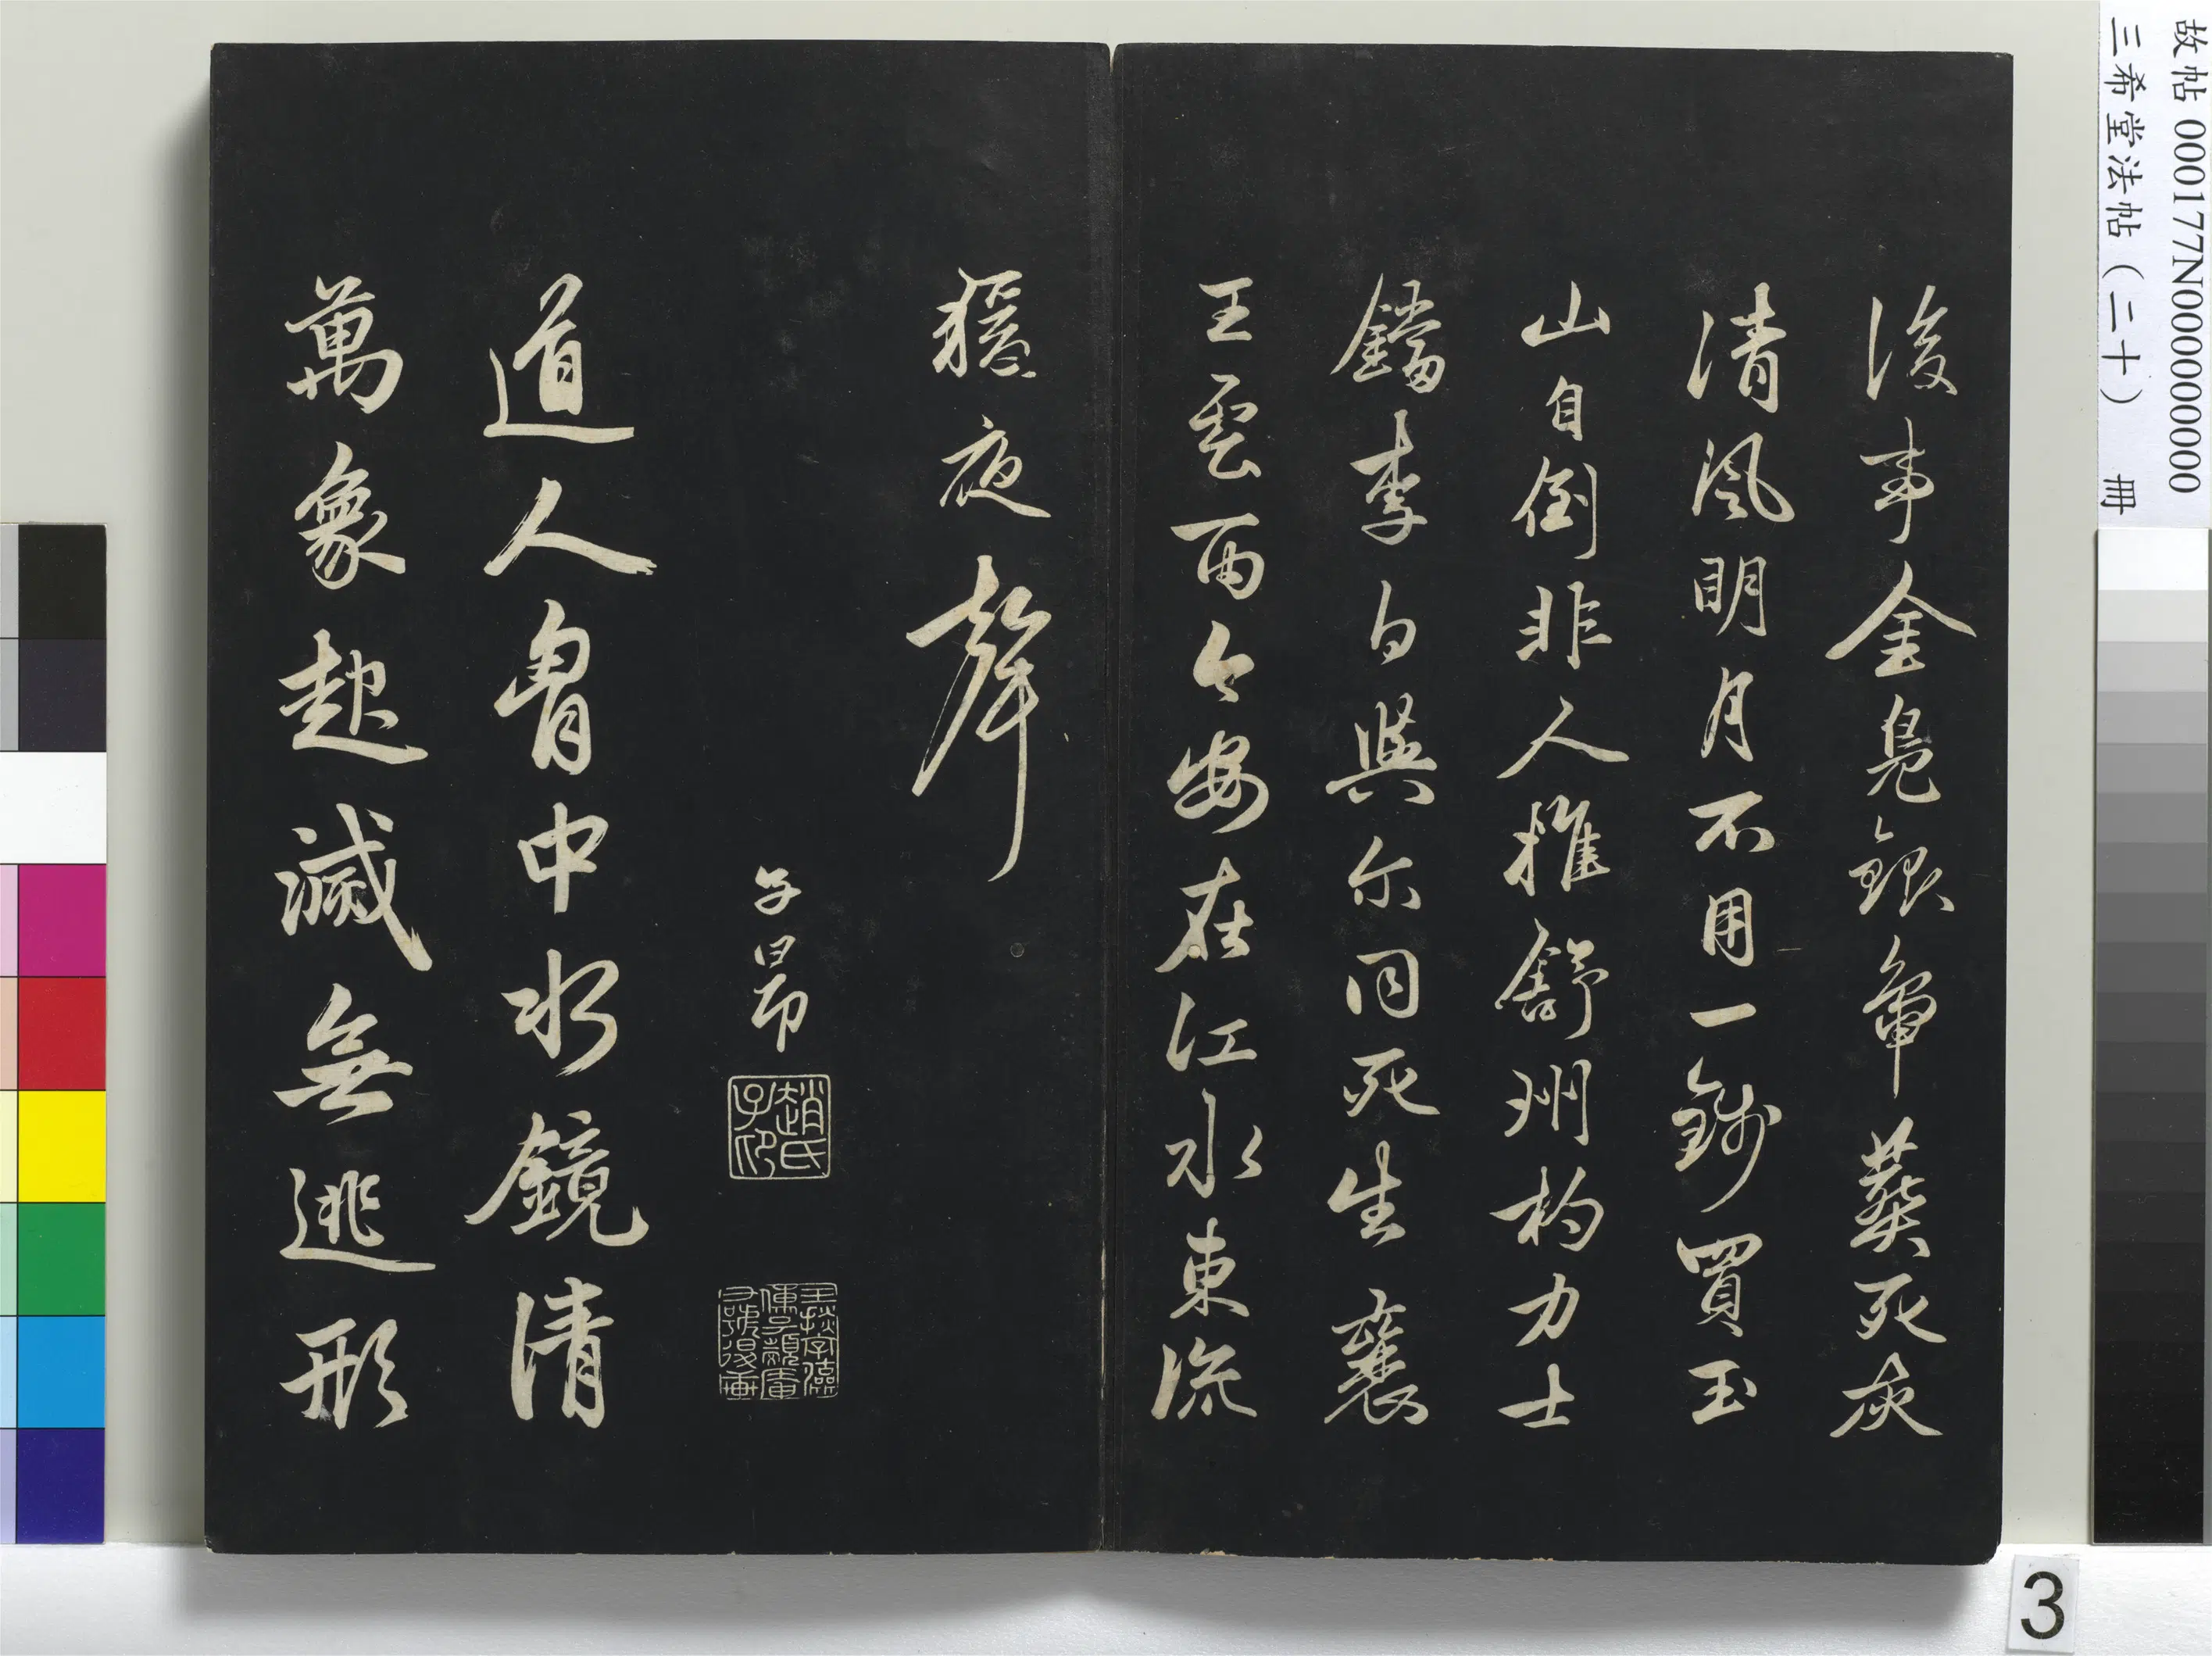 後事金鳧銀龜葬死灰
清風明月不用一錢買玉
山自倒非人推舒州杓力士
鐺李白與尔同死生襄
王雲雨今安在江水東流
猿夜聲
子昂
趙氏子印
道人胷中水鏡清
萬象起滅無逃形
故帖 000177N000000000
三希堂法帖（二十） 冊
3